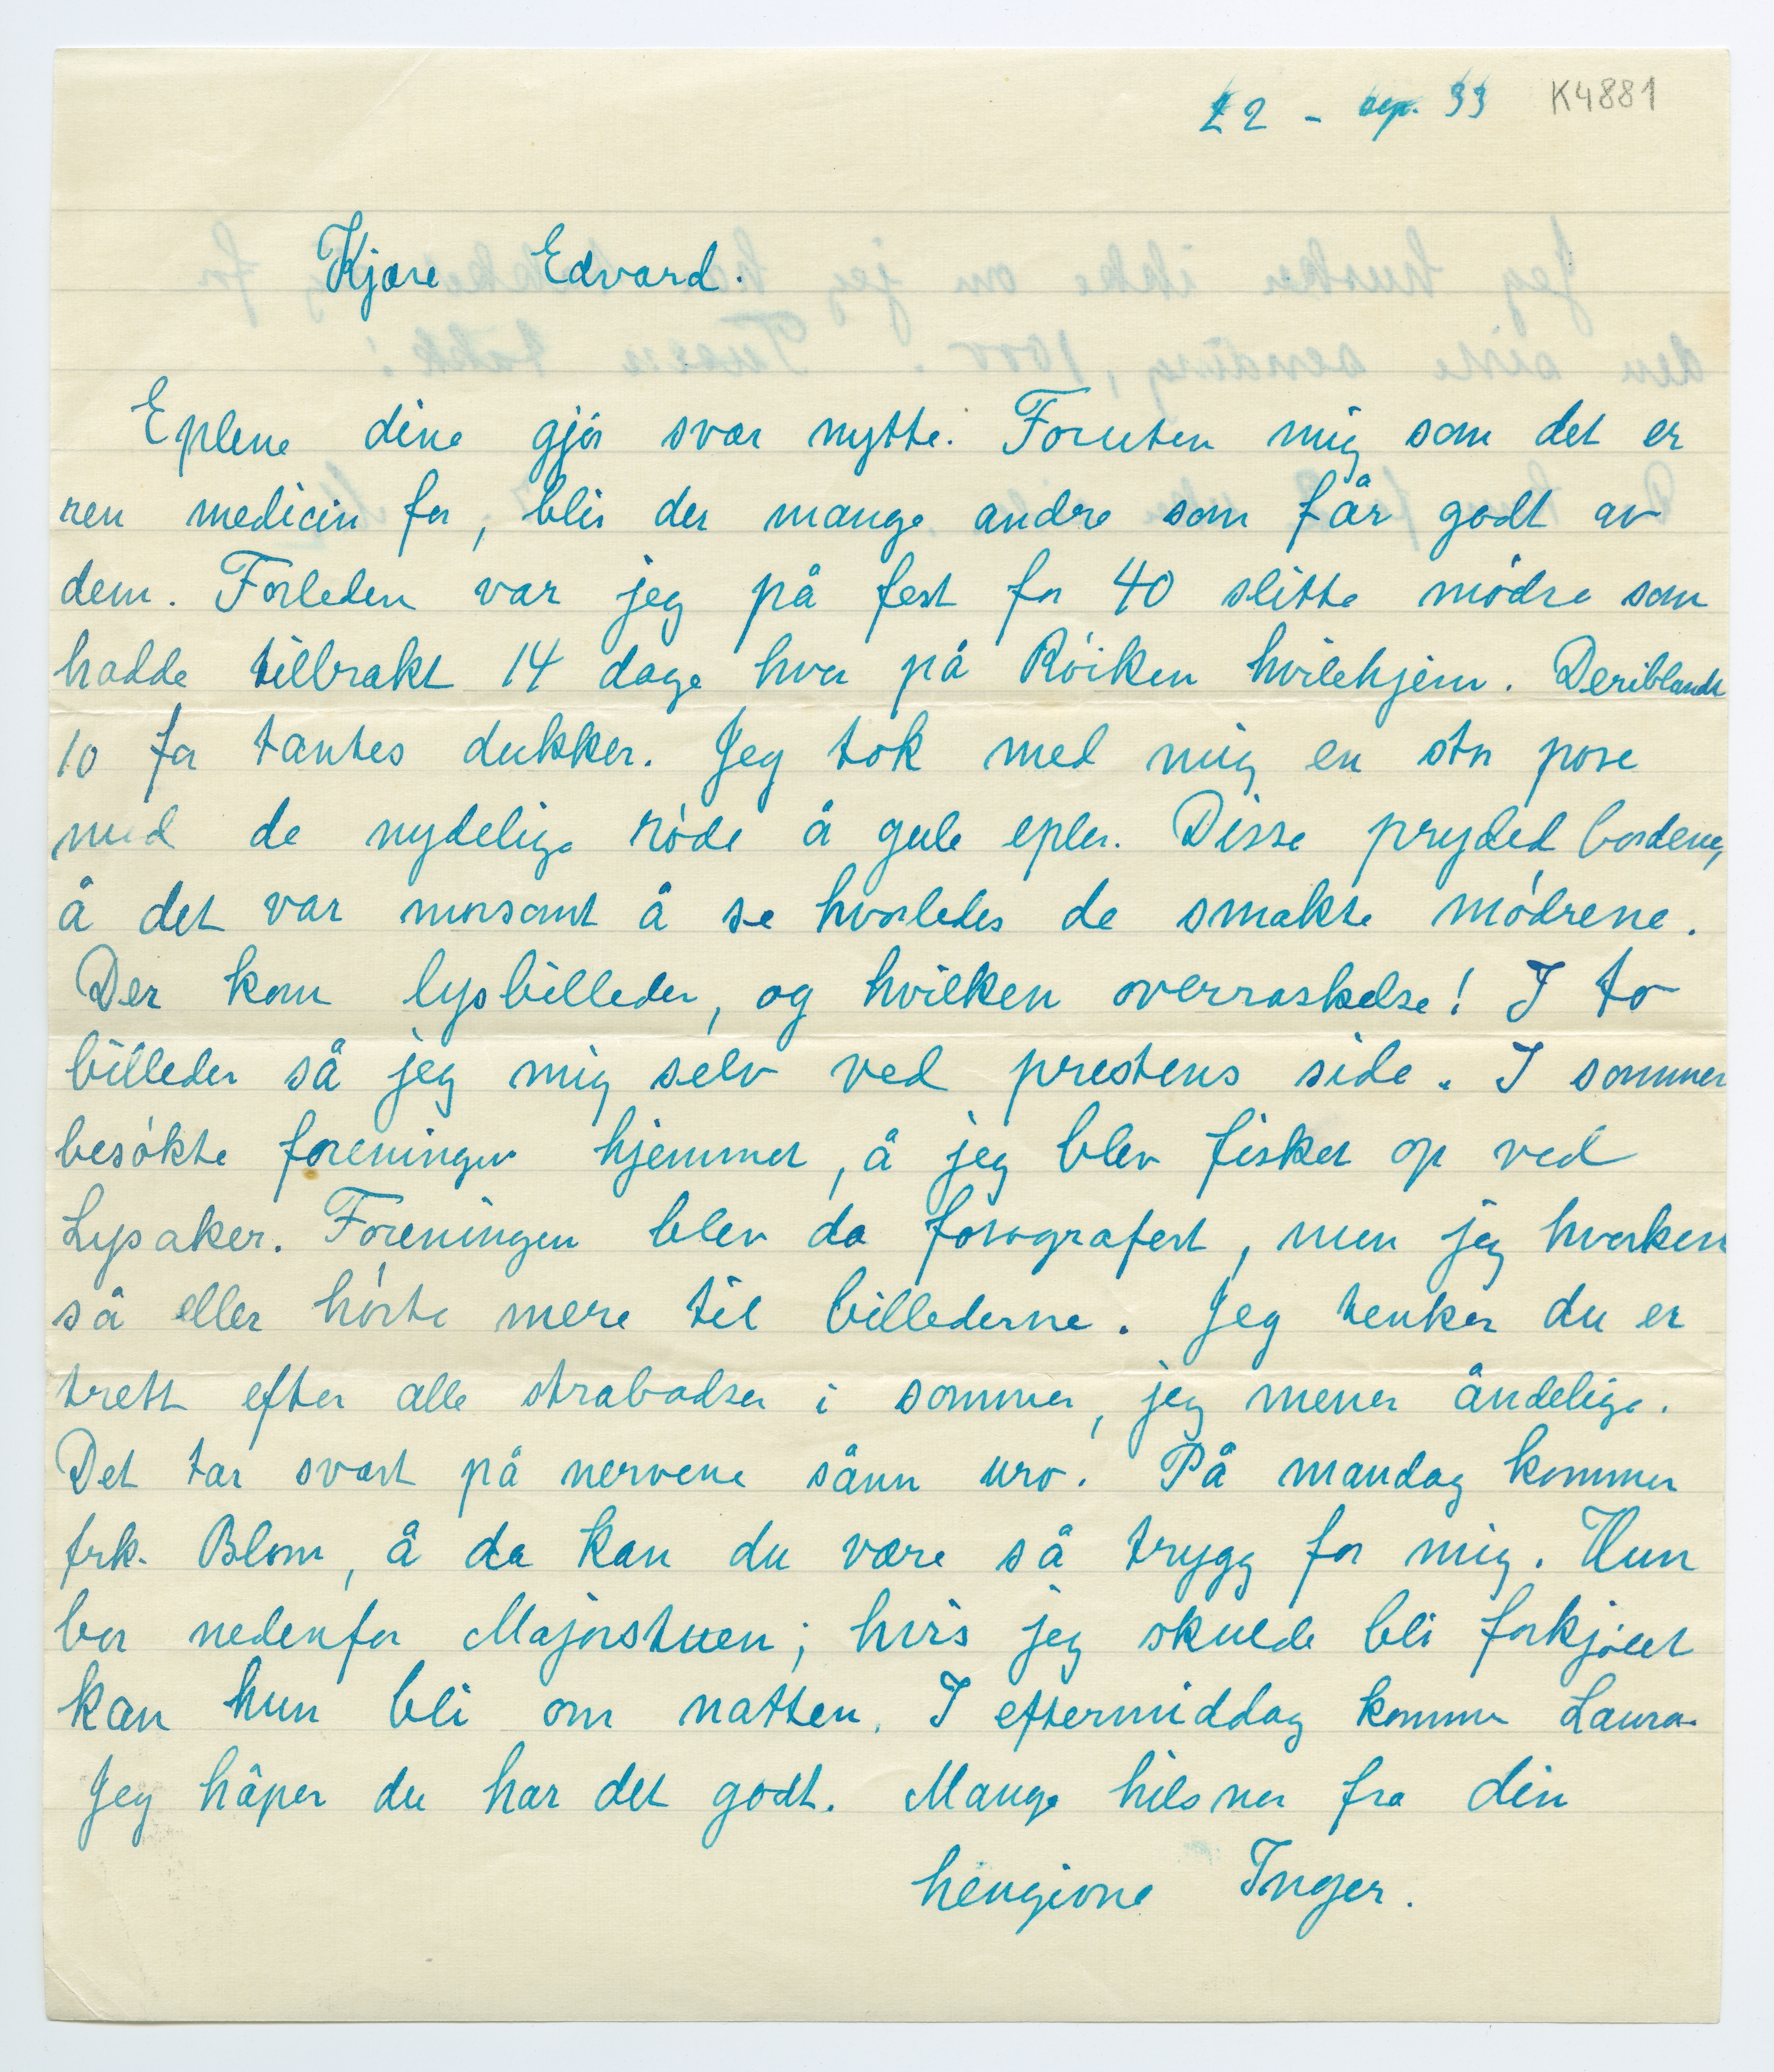 22 - sep. 33 K4881
Kjære Edvard.
Eplene dine gjör svær nytte. Foruten mig som det er
ren medicin for, blir der mange andre som får godt av
dem. Forleden var jeg på fest for 40 slitte mödre som
hadde tilbrakt 14 dage hver på Röiken hvilehjem. Deriblandt
10 for tantes dukker. Jeg tok med mig en stor pose
med de nydelige röde å gule epler. Disse pryded bordene,
å det var morsomt å se hvorledes de smakte mödrene.
Der kom lysbilleder, og hvilken overraskelse! I to
billeder så jeg mig selv ved prestens side. I sommer
besökte foreningen hjemmet, å jeg blev fisket op ved
Lysaker. Foreningen blev da fotografert, men jeg hverken
så eller hörte mere til billederne. Jeg tenker du er
trett efter alle strabadser i sommer, jeg mener åndelige.
Det tar svært på nervene sånn uro. På mandag kommer
frk. Blom, å da kan du være så trygg for mig. Hun
bor nedenfor Majorstuen; hvis jeg skulde bli forkjölet
kan hun bli om natten. I eftermiddag kommer Laura.
Jeg håper du har det godt. Mange hilsner fra din
hengivne Inger.